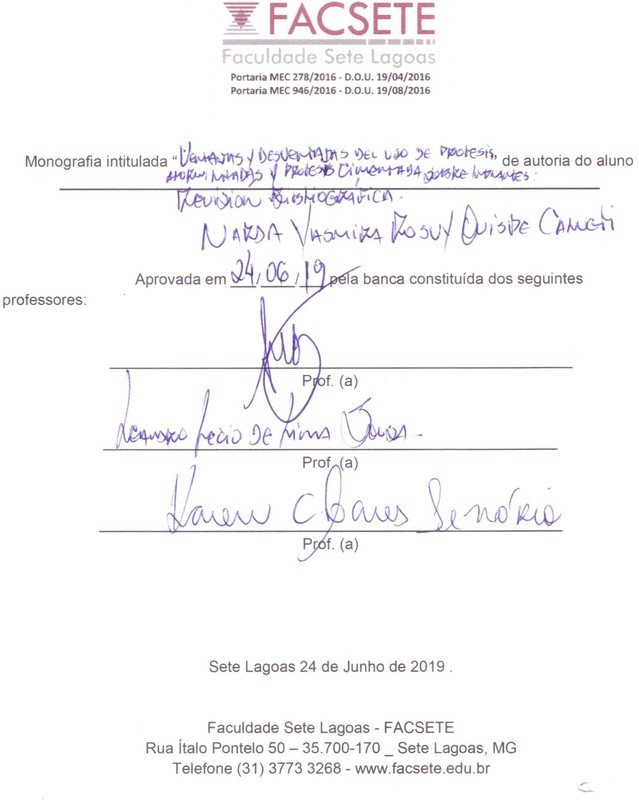 FACSETE
Faculdade Sete Lagoas
Portaria MEC 278/2016 - D.O.U. 19/04/2016
Portaria MEC 946/2016 - D.O.U. 19/08/2016
Monografia intitulada "Ventajas y Desventajas del uso de protesis de autoria do aluno
atornilladas y protesis cimentada sobre implantes:
Revision Bibliográfica.
Narda Yasmira Rosuy Quispe
Aprovada em 24/06/19 pela banca constituída dos seguintes
professores:
Prof. (a)
Leandro Lecio de Lima Sousa.
Prof. (a)
Karen C Soares Senório
Prof. (a)
Sete Lagoas 24 de Junho de 2019 .
Faculdade Sete Lagoas - FACSETE
Rua Ítalo Pontelo 50 – 35.700-170 _ Sete Lagoas, MG
Telefone (31) 3773 3268 - www.facsete.edu.br